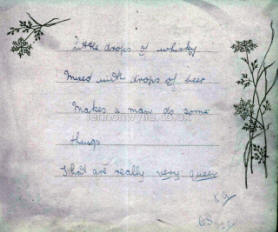 Little drops of whisky
Mixed with drops of beer
Makes a man do some
things
That are really very queer